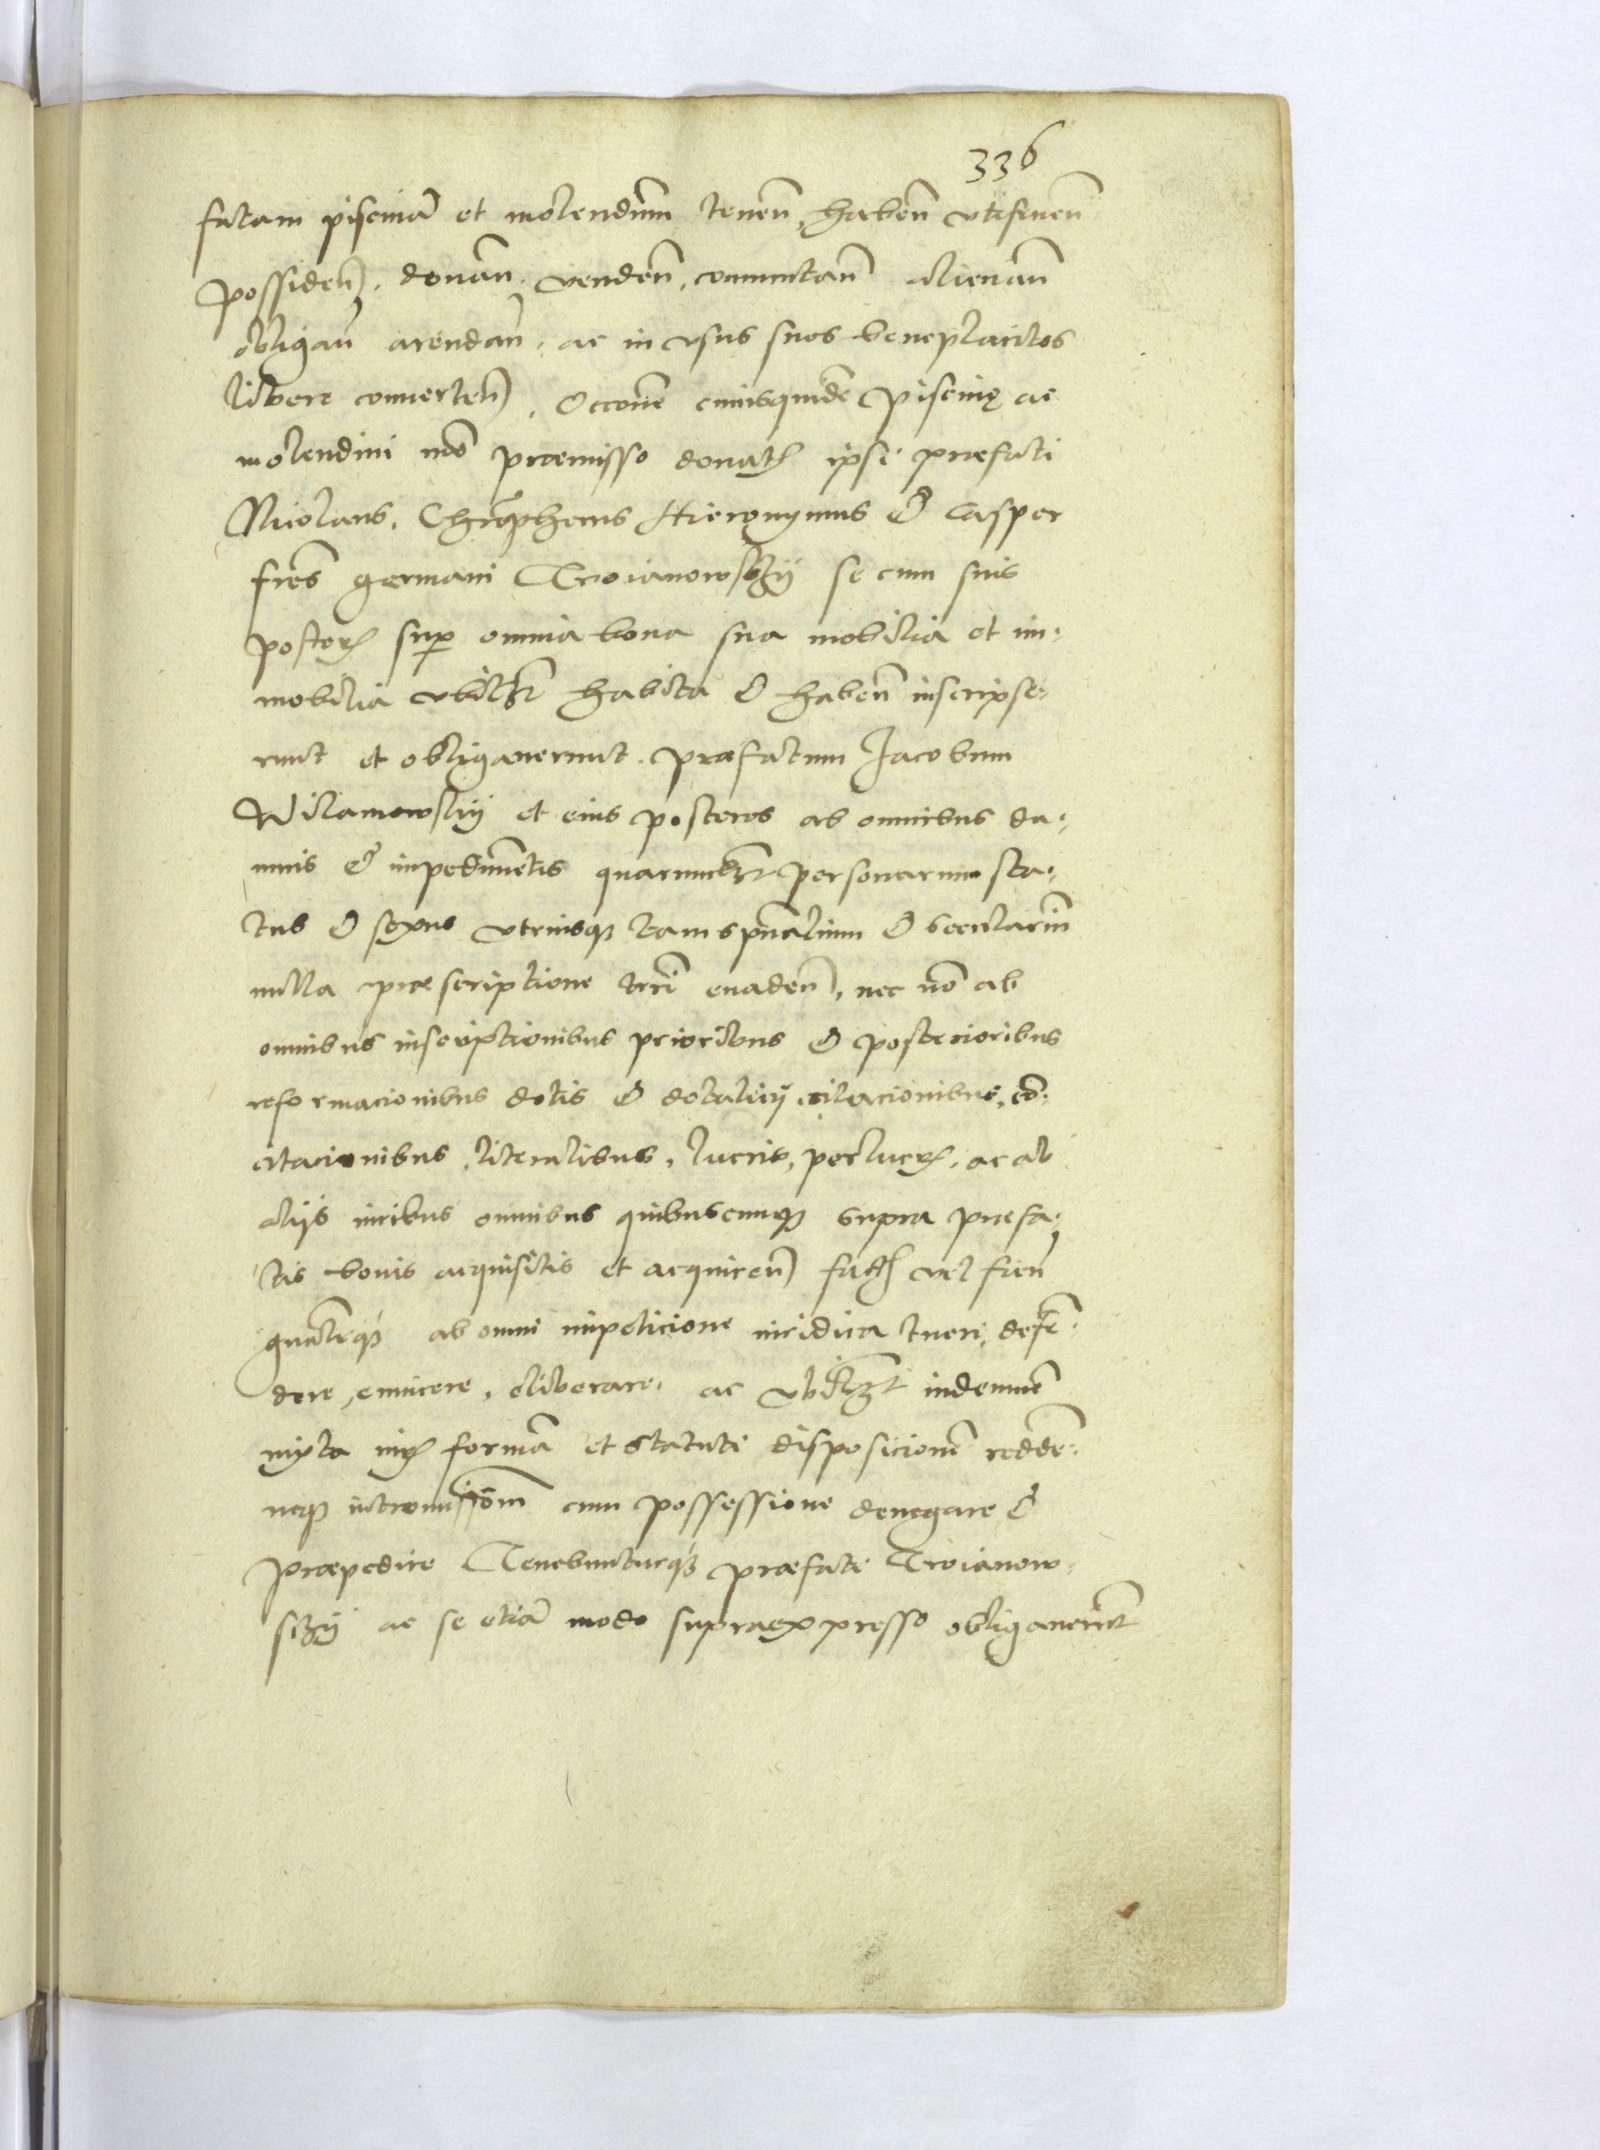 336
fatam piscinā et molendinū tenen̄, haben̄ vtifruen̄
possiden̄. donan̄. venden̄. commutan̄ alienan̄
obligan̄ arendan̄. ac in vsus suos beneplacitos
libere conuerten̄. Occōne cuiusquidē Piscinę ac
molendini mō præmisso donatꝝ ipsi præfati
Nicolaus, Chrōphorus Hieronymus & Casper
frēs germani Troianowsczÿ se cum suis
posterꝭ sup omnia bona sua mobilia et im:
mobilia vbilib3t habita & haben̄ inscripse:
runt et obligauerunt. præfatum Jacobum
Wilamowskÿ et eius posteros ab omnibus da:
mnis & impedimētis quarumlib3t personarum sta:
tus & sexus vtriusqꝫ tam spūalium & seculariū
nulla præscriptione trrī euaden̄, nec nō ab
omnibus inscriptionibus prioribus & posterioribus
reformacionibus dotis & dotalicÿ citacionibus, cō:
citacionibus, literalibus, lucris, perlucrꝭ, ac ab
alÿs iuribus omnibus quibuscunqꝫ supra præfa:
tis bonis acquisitis et acquiren̄ factꝭ vel fien̄
ab omni impeticione iuridica tueri, defē:
dere, euincere, eliberare. ac vbilib3t indemnē
iuxta iurꝭ formā et statuti disposicionē reddē:
neqꝫ intromissiōm cum possessione denegare &
præpedire Tenebunturqꝫ præfati Troianow:
sczÿ ac se etiā modo supraexpresso obligauerūt